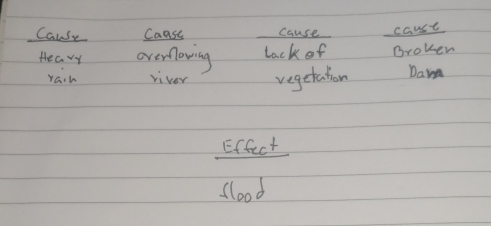 Cause Cause cause cause
Heavy overflowing Lack of Broken
rain river vegetation Dam
Effect
flood